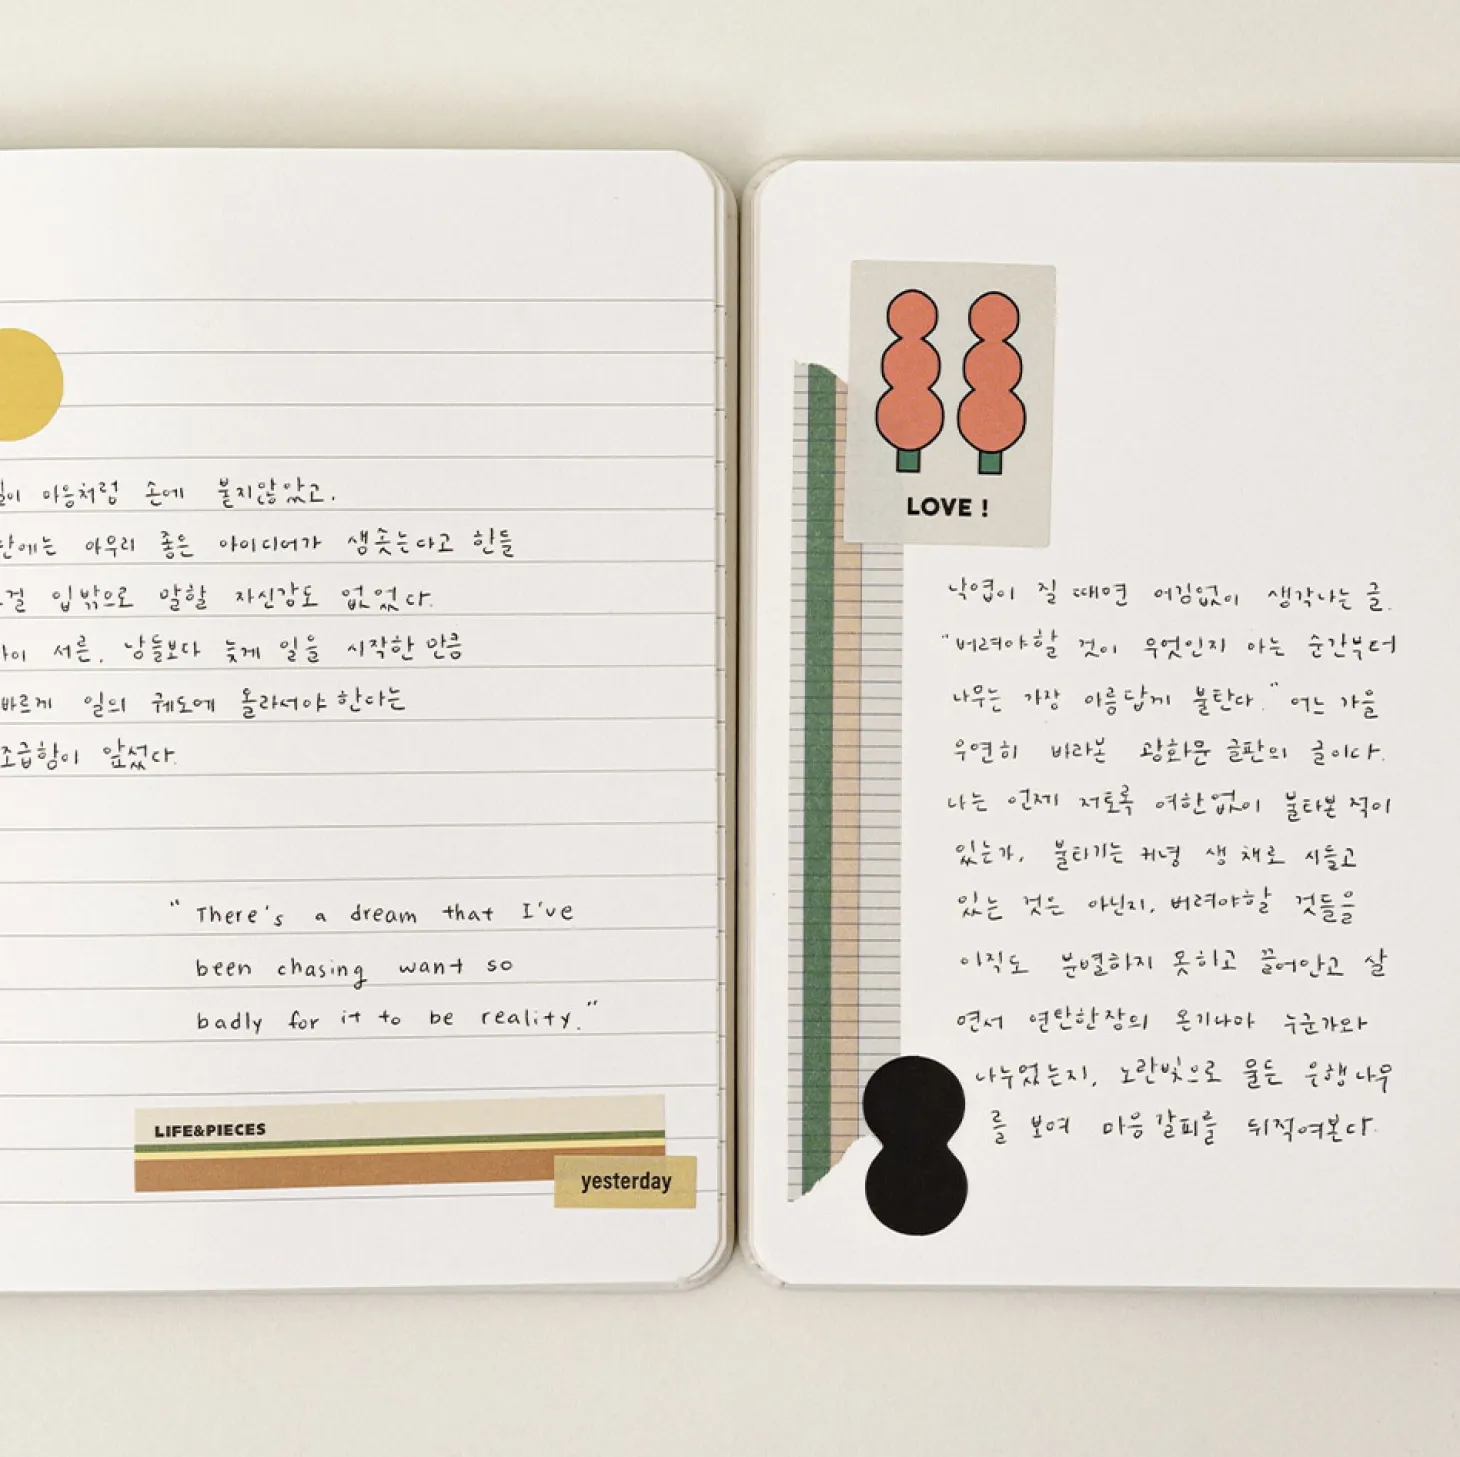 마음처럼 손에 붙지않았고.
아무리 좋은 아이디어가 샘솟는다고 한들
입밖으로 말할 자신감도 없었다.
서른. 남들보다 늦게 일을 시작한 만큼
빠르게 일의 궤도에 올라서야 한다는
조급함이 앞섰다.
"There's a dream that I've
been chasing want so
badly for it to be reality."
LIFE&PIECES
yesterday
LOVE !
낙엽이 질 때면 어김없이 생각나는 글.
"버려야할 것이 무엇인지 아는 순간부터
나무는 가장 아름답게 불탄다." 어느 가을
우연히 바라본 광화문 글판의 글이다.
나는 언제 저토록 여한없이 불타본 적이
있는가. 불타기는 커녕 생 채로 시들고
있는 것은 아닌지. 버려야할 것들을
아직도 분별하지 못하고 끌어안고 살
면서 연탄한장의 온기나마 누군가와
나누었는지. 노란빛으로 물든 은행나무
를 보며 마음 갈피를 뒤적여본다.